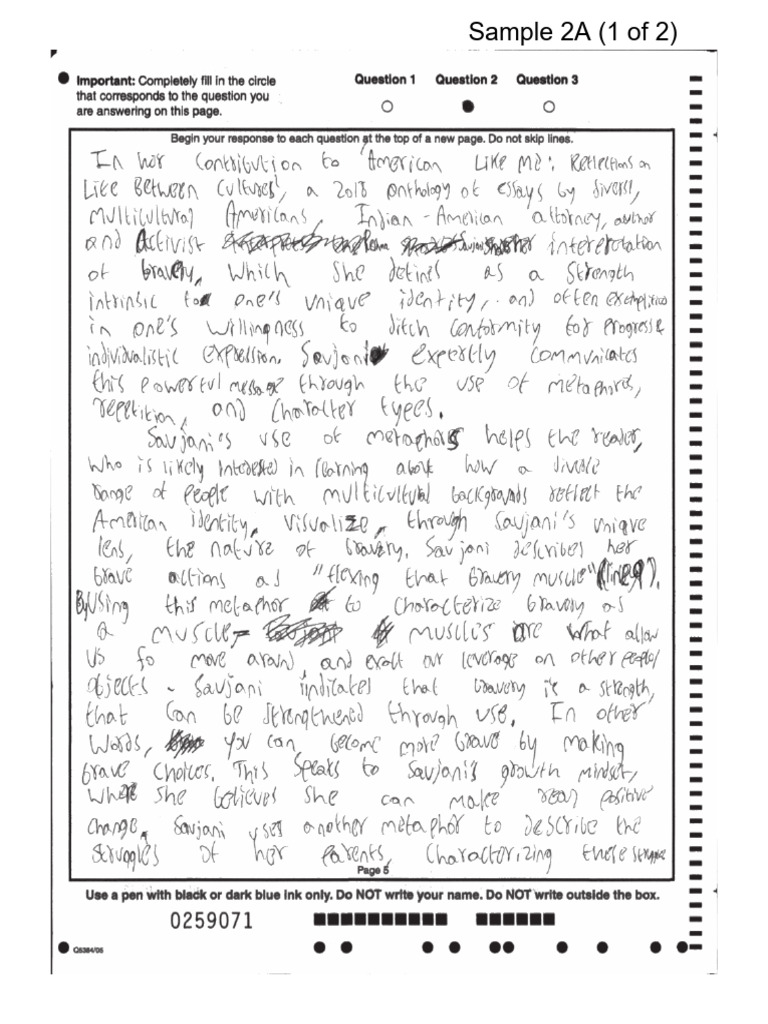 Sample 2A (1 of 2)
Important: Completely fill in the circle
that corresponds to the question you
are answering on this page.
Question 1 Question 2 Question 3
Begin your response to each question at the top of a new page. Do not skip lines.
In her contribution to 'American Like Me: Reflections on
Life Between Cultures', a 2018 anthology of essays by diverse,
multicultural Americans, Indian-American attorney, author
and Activist interpretation
of bravery, which she defines as a strength
intrinsic to one's unique identity, and often exemplified
in one's willingness to ditch conformity for progress &
individualistic expression. Saujani expertly communicates
this powerful message through the use of metaphors,
repetition, and character types.
Saujani's use of metaphors helps the reader,
who is likely interested in learning about how a diverse
range of people with multicultural backgrounds reflect the
American identity, visualize, through Saujani's unique
lens, the nature of bravery. Saujani describes her
brave actions as "flexing that bravery muscle"
By using this metaphor to characterize bravery as
a muscle - muscles are what allow
us to move around, and exalt our leverage on other people/
objects - Saujani indicates that bravery is a strength,
that can be strengthened through use. In other
words, you can become more brave by making
brave choices. This speaks to Saujani's growth mindset,
where she believes she can make real positive
change. Saujani uses another metaphor to describe the
struggles of her parents, characterizing these struggle
Page 5
Use a pen with black or dark blue ink only. Do NOT write your name. Do NOT write outside the box.
0259071
Q5384/05